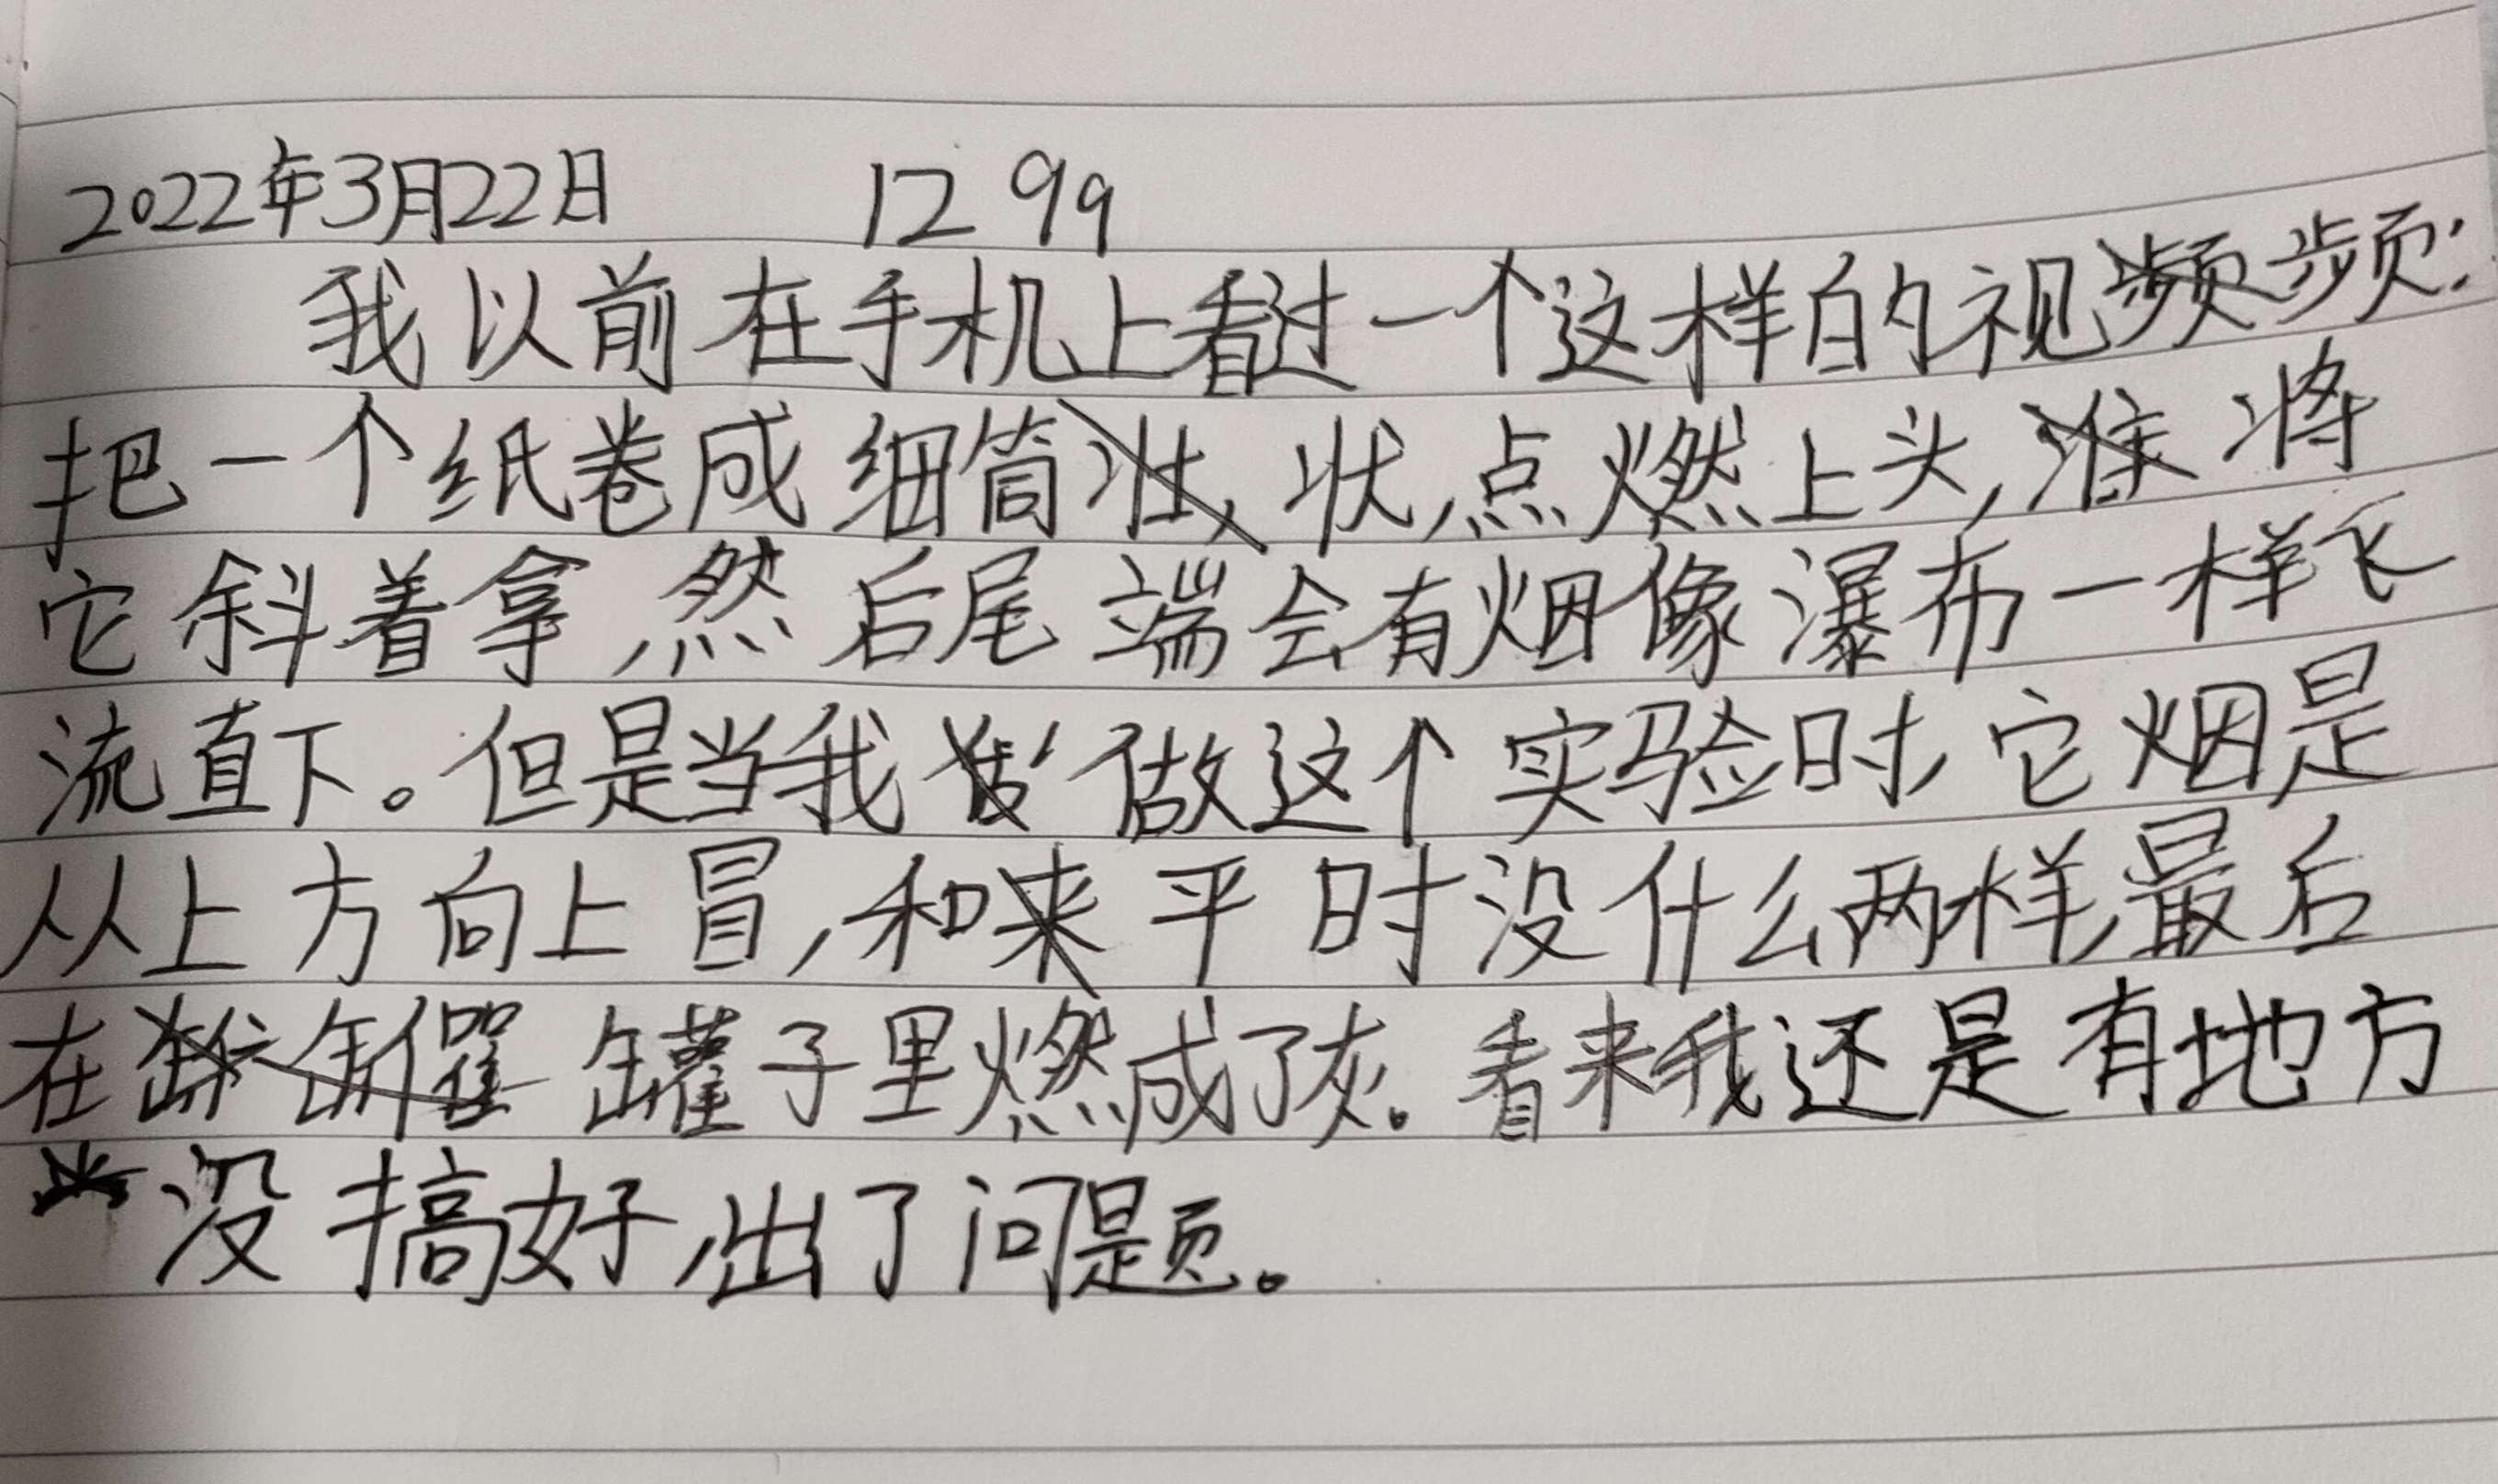 2022年3月22日 1299
我以前在手机上看过一个这样的视频:
把一个纸卷成细筒状,点燃上头,将
它斜着拿,然后尾端会有烟像瀑布一样飞
流直下。但是当我做这个实验时,它烟是
从上方向上冒,和平时没什么两样,最后
在罐子里燃成了灰。看来我还是有地方
没搞好,出了问题。